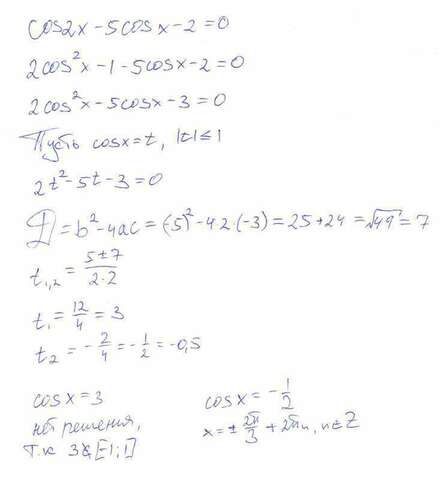 cos2x - 5cosx - 2 = 0
2cos²x - 1 - 5cosx - 2 = 0
2cos²x - 5cosx - 3 = 0
Пусть cosx = t, |t| ≤ 1
2t² - 5t - 3 = 0
D = b² - 4ac = (-5)² - 4·2·(-3) = 25 + 24 = √49 = 7
t₁,₂ = (5 ± 7)/(2·2)
t₁ = 12/4 = 3
t₂ = -2/4 = -1/2 = -0,5
cosx = 3
нет решения,
т.к 3 ∉ [-1; 1]
cosx = -1/2
x = ± 2π/3 + 2πn, n ∈ Z